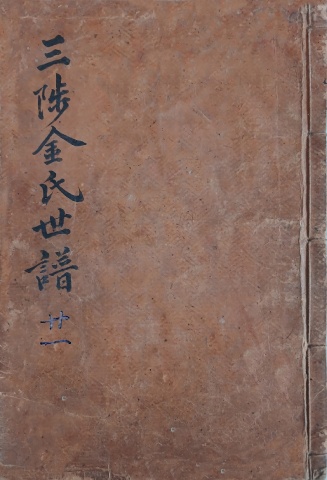 三陟金氏世譜 廿一